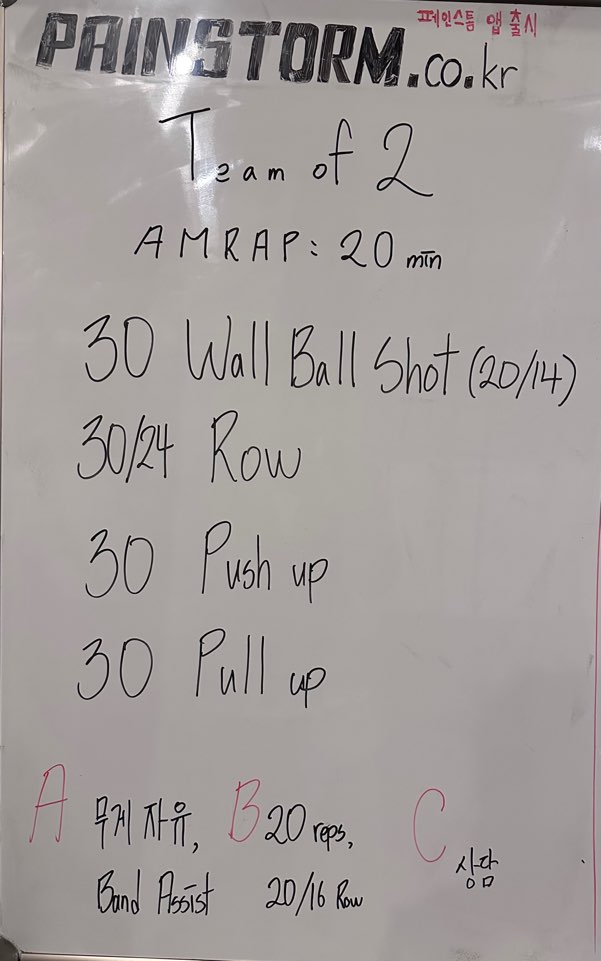 페인스톰 앱 출시
PAINSTORM.co.kr
Team of 2
AMRAP: 20 min
30 Wall Ball Shot (20/14)
30/24 Row
30 Push up
30 Pull up
A 무게 자유, B 20 reps, C 상담
Band Assist 20/16 Row